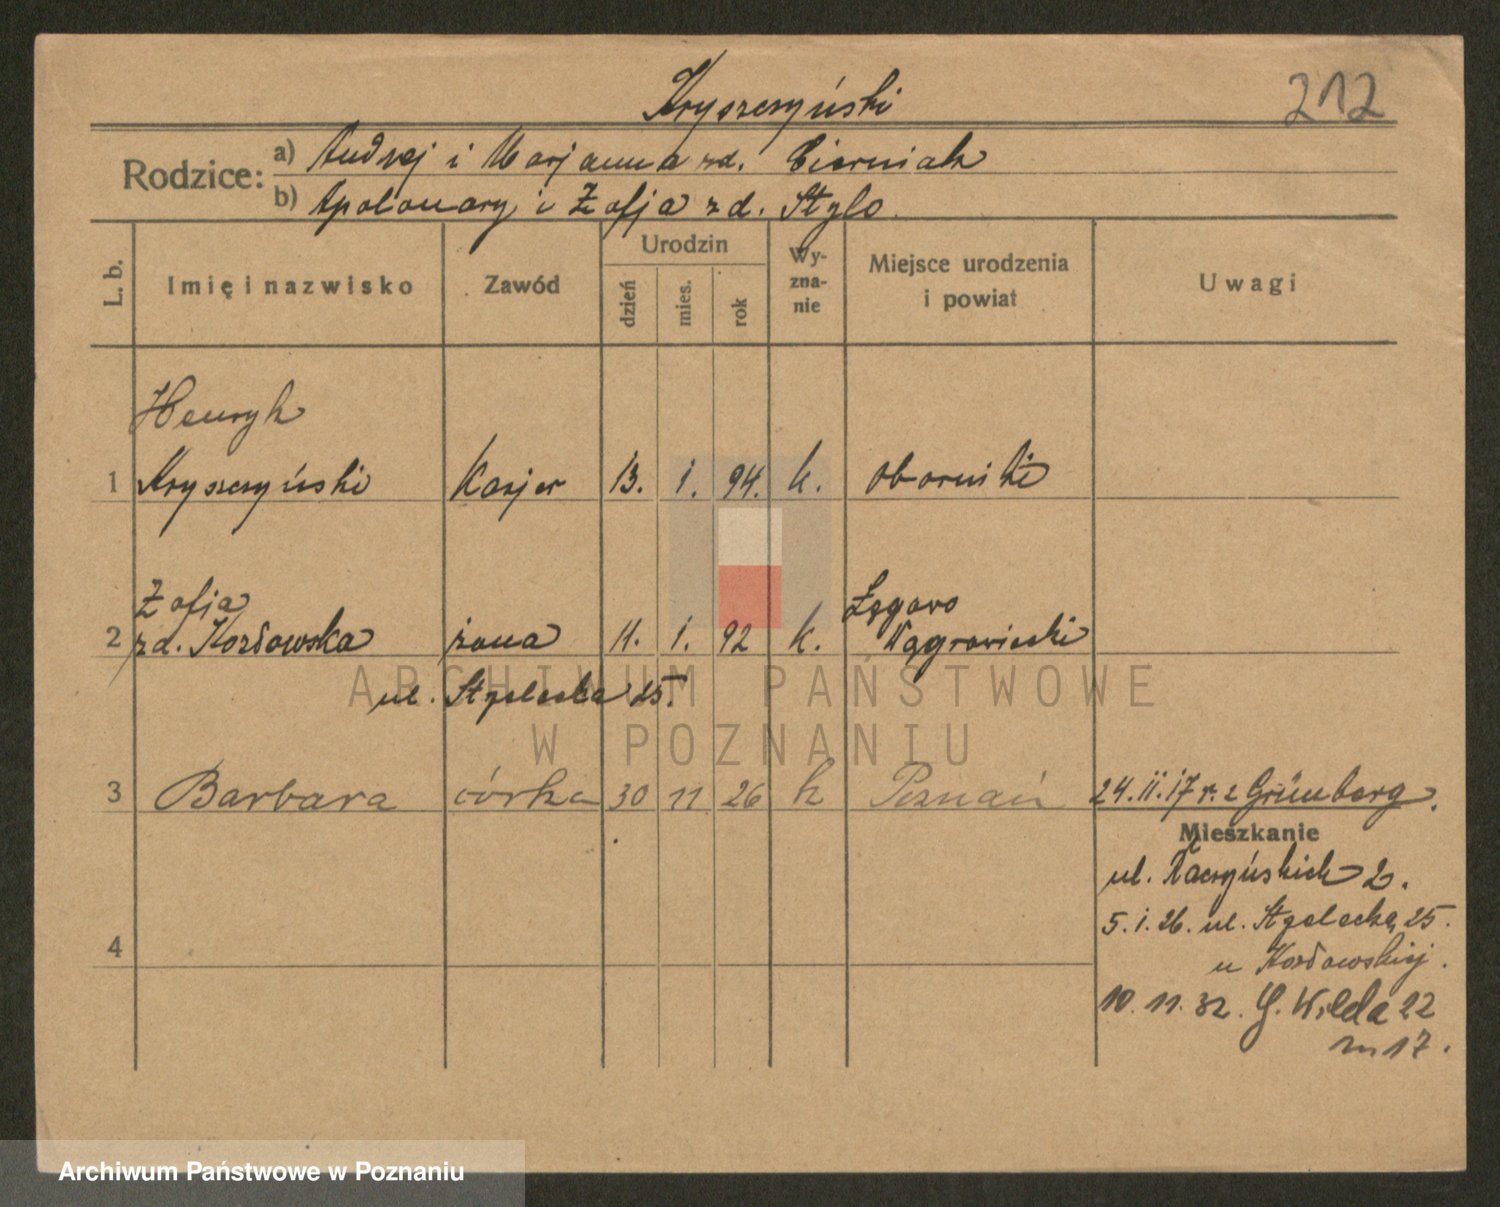 Kryszczyński
212
Rodzice:
a) Andrzej i Marjanna zd. Cierniak
b) Apolonary i Zofja zd. Stylo
L. b.
Imię i nazwisko
Zawód
Urodzin
dzień
mies.
rok
Wy-
zna-
nie
Miejsce urodzenia
i powiat
Uwagi
Henryk
1 Kryszczyński Kasjer 13. 1. 94. k. Oborniki
Zofja
2 zd. Kozłowska żona 11. 1. 92 k. Łęgowo
Wągrowiecki
ul. Strzelecka 25.
3 Barbara córka 30 11 26 k Poznań 24.II.17 r. z Grünberg.
Mieszkanie
ul. 2.
5.1.26. ul. Strzelecka 25.
4
u Kozłowskiej.
10.11.32. G. Wilda 22
m 17.
ARCHIWUM PAŃSTWOWE
W POZNANIU
Archiwum Państwowe w Poznaniu